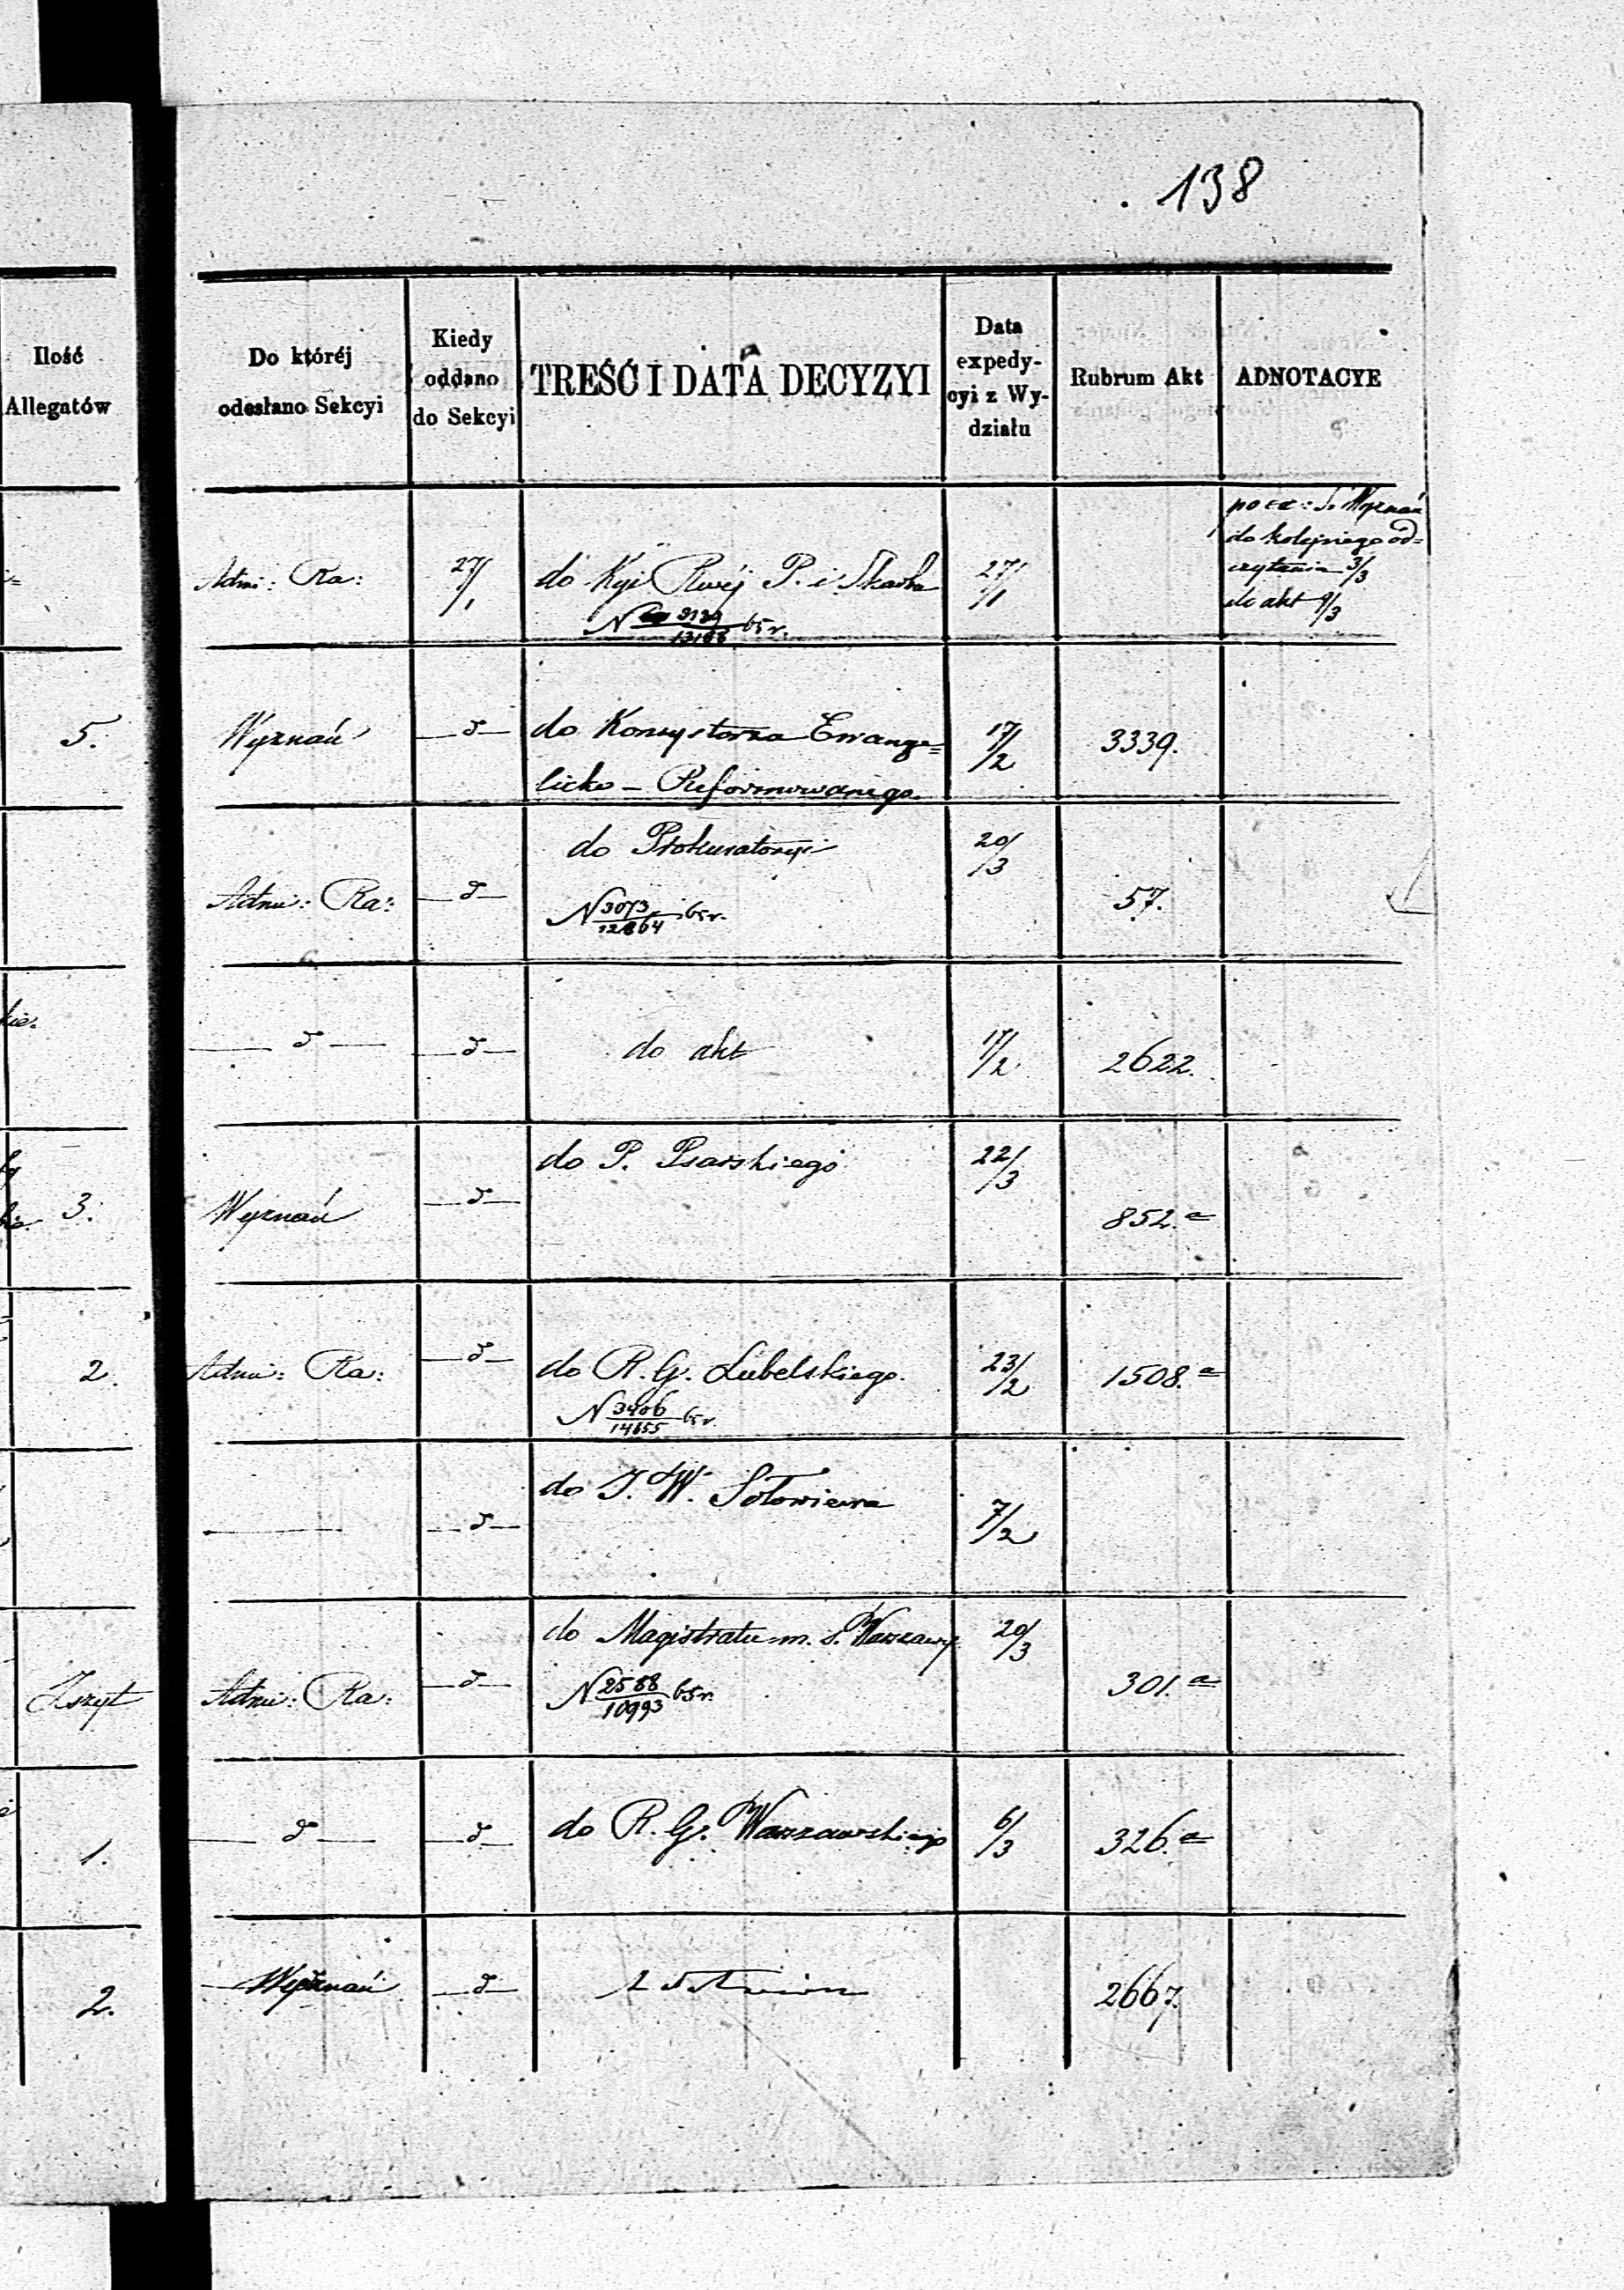 138
Ilość
Allegatów
Do któréj
odesłano Sekcyi
Kiedy
oddano
do Sekcyi
TREŚĆ I DATA DECYZYI
Data
expedy-
cyi z Wy-
działu
Rubrum Akt
ADNOTACYE
Wyznań
do kolejnego od=
czytania 3/3
do akt 9/3
Admi: Ra:
27/1
do Kyi Rwéj P. i Skarbu
27/1
N 3139/13168 65 r.
5.
Wyznań
—d—
do Konsystorza Ewange=
licko – Reformowanego.
17/2
3339.
Admi: Ra:
—d—
do Prokuratoryi
20/3
N 3073/12864 65 r.
57.
— d —
—d—
do akt
17/2
2622.
3.
Wyznań
—d—
do P. Psarskiego
22/3
852.a
2.
Admi: Ra:
—d—
do R. G. Lubelskiego.
23/2
1508.a
N 3406/14655 65 r.
—d—
do J. W. Sołowiewa
7/2
Zszyt
Admi: Ra:
—d—
do Magistratu m. S. Warszawy
20/3
N 2558/10993 65 r.
301.a
1.
— d —
—d—
do R. G. Warszawskiego
6/3
326.a
2.
Wyznań
—d—
2667.